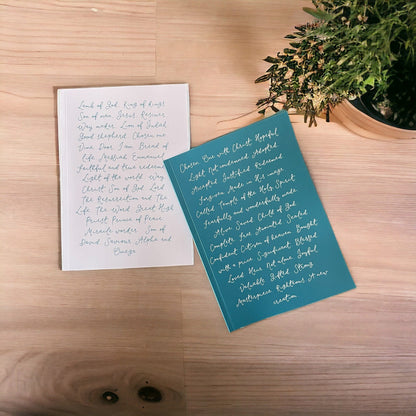 Lamb of God King of Kings
Son of man Jesus Redeemer
Way maker Lion of Judah
Good shepherd Chosen one
Vine Door I am Bread of
life Messiah Emmanuel
Faithful and true redeemer
Light of the world Way
Christ Son of God Lord
The Resurrection and The
Life The Word Great High
Priest Prince of Peace
Miracle worker Son of
David Saviour Alpha and
Omega
Chosen One with Christ Hopeful
Light Not condemned Adopted
Accepted Justified Redeemed
Forgiven Made in His image
Called Temple of the Holy Spirit
Fearfully and wonderfully made
Alive Saved Child of God
Complete Free Anointed Sealed
Confident Citizen of heaven Bought
with a price Significant Blessed
Loved Heir Not alone Joyful
Valuable Gifted Strong
Masterpiece Righteous A new
creation